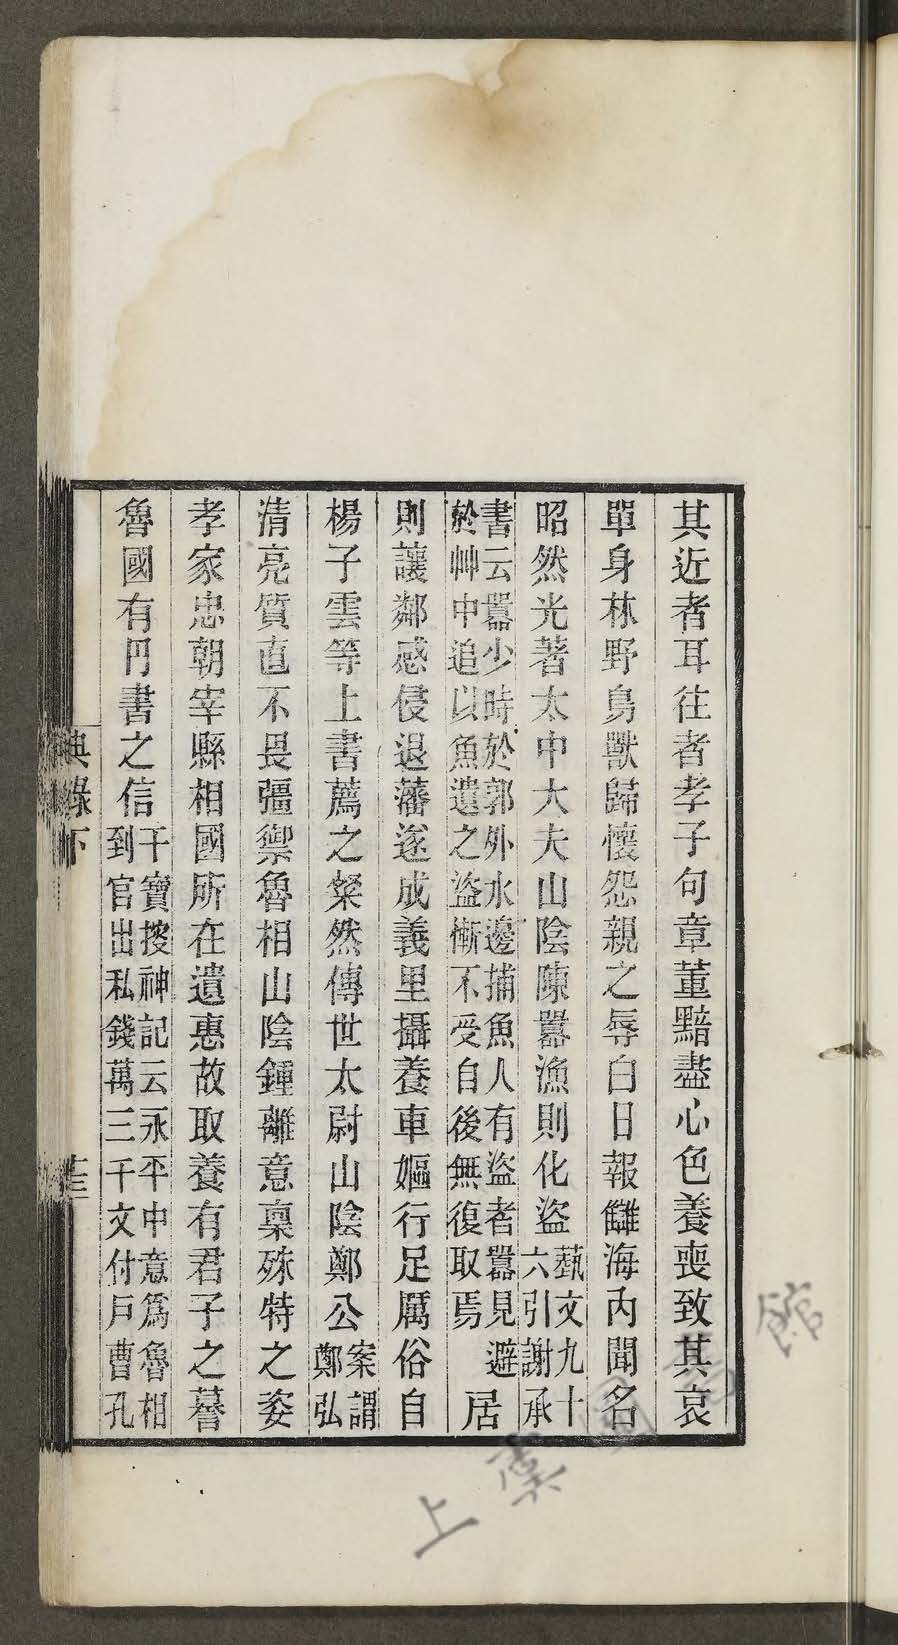 其近者耳往者孝子句章董黯盡心色養喪致其哀
單身林野鳥獸歸懷怨親之辱白日報讎海內聞名
昭然光著太中大夫山陰陳囂漁則化盜藝文九十六引謝承
書云囂少時於郭外水邊捕魚人有盜者囂見避於艸中追以魚遺之盜慚不受自後無復取焉居
則讓鄰感侵退藩遂成義里攝養車嫗行足厲俗自
楊子雲等上書薦之粲然傳世太尉山陰鄭公案謂鄭弘
清亮質直不畏彊禦魯相山陰鍾離意稟殊特之姿
孝家忠朝宰縣相國所在遺惠故取養有君子之䜟
魯國有丹書之信干寶搜神記云永平中意爲魯相到官出私錢萬三千文付戶曹孔
典錄下
十三
上虞圖書館